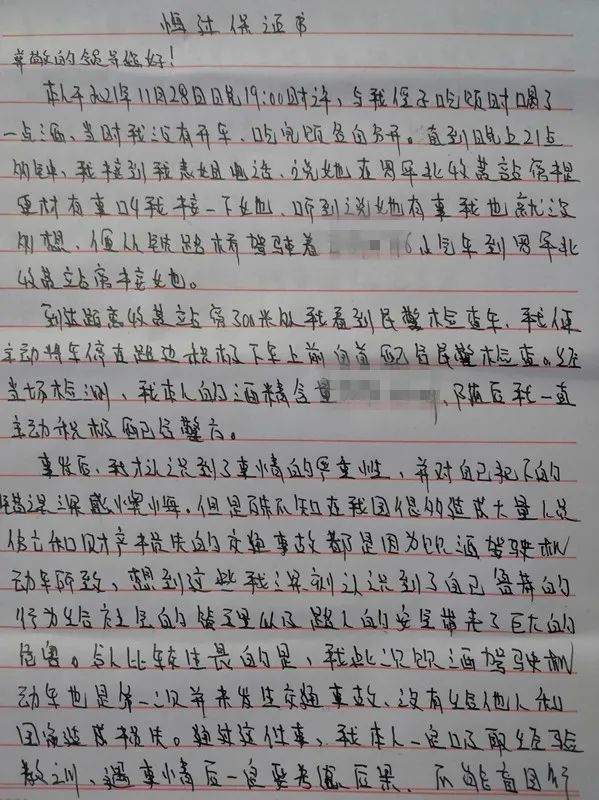 悔过保证书
尊敬的领导您好！
本人于2021年11月28日晚19:00时许，与我侄子吃饭时喝了
一点酒，当时我没有开车，吃完饭各自分开。直到晚上21点
多钟，我接到我表姐电话，说她在周年北收费站旁
有事叫我接一下她，听到说她有事我也就没
多想，便从铁路桥驾驶着 6小汽车到周年北
收费站旁接她。
到达距离收费站旁300米处我看到民警检查车，我便
主动将车停在路边积极下车上前向前配合民警检查。经
当场检测，我本人的酒精含量 ，随后我一直
主动积极配合警方。
事发后，我才认识到了事情的严重性，并对自己犯下的
错误深感懊悔。但是殊不知在我国很多造成大量人员
伤亡和财产损失的交通事故都是因为饮酒驾驶机
动车所致，想到这些我深刻认识到了自己鲁莽的
行为给社会的管理以及路人的安全带来了巨大的
危害。令人比较庆幸的是，我此次饮酒驾驶机
动车也是第一次并未发生交通事故、没有给他人和
国家造成损失。通过这件事，我本人一定吸取经验
教训、遇事情后一定要考虑后果、不能盲目行